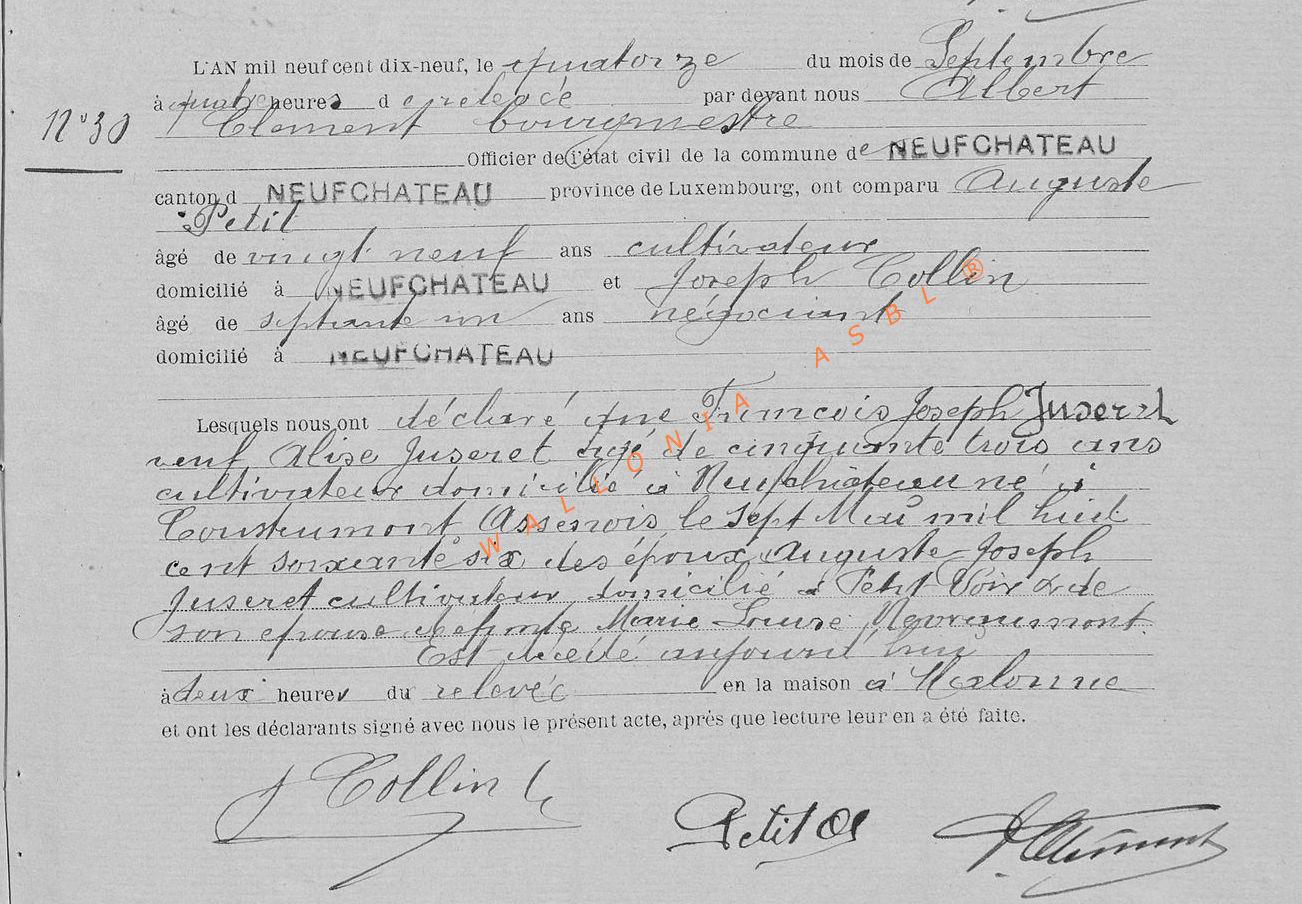 L'AN mil neuf cent dix-neuf, le quatorze du mois de Septembre
à quatre heures d e relevée par devant nous Albert
N° 30
Clement bourgmestre
Officier de l'état civil de la commune de NEUFCHATEAU
canton d NEUFCHATEAU province de Luxembourg, ont comparu Auguste
Petit
âgé de vingt neuf ans cultivateur
domicilié à NEUFCHATEAU et Joseph Collin
âgé de septante un ans négociant
domicilié à NEUFCHATEAU
WALLONIA ASBL ®
Lesquels nous ont déclaré que Francois Joseph Juseret
veuf Alise Juseret agé de cinquante trois ans
cultivateur domicilié à Neufchateau né à
Coustumont Assenois, le sept Mai mil huit
cent soixante six, des époux Auguste Joseph
Juseret cultivateur domicilié à Petit Voir & de
son épouse Marie Louise
Est décédé aujourd'hui
à deux heures du relevée en la maison à Malome
et ont les déclarants signé avec nous le présent acte, après que lecture leur en a été faite.
J Collin
Petit A
A Clément